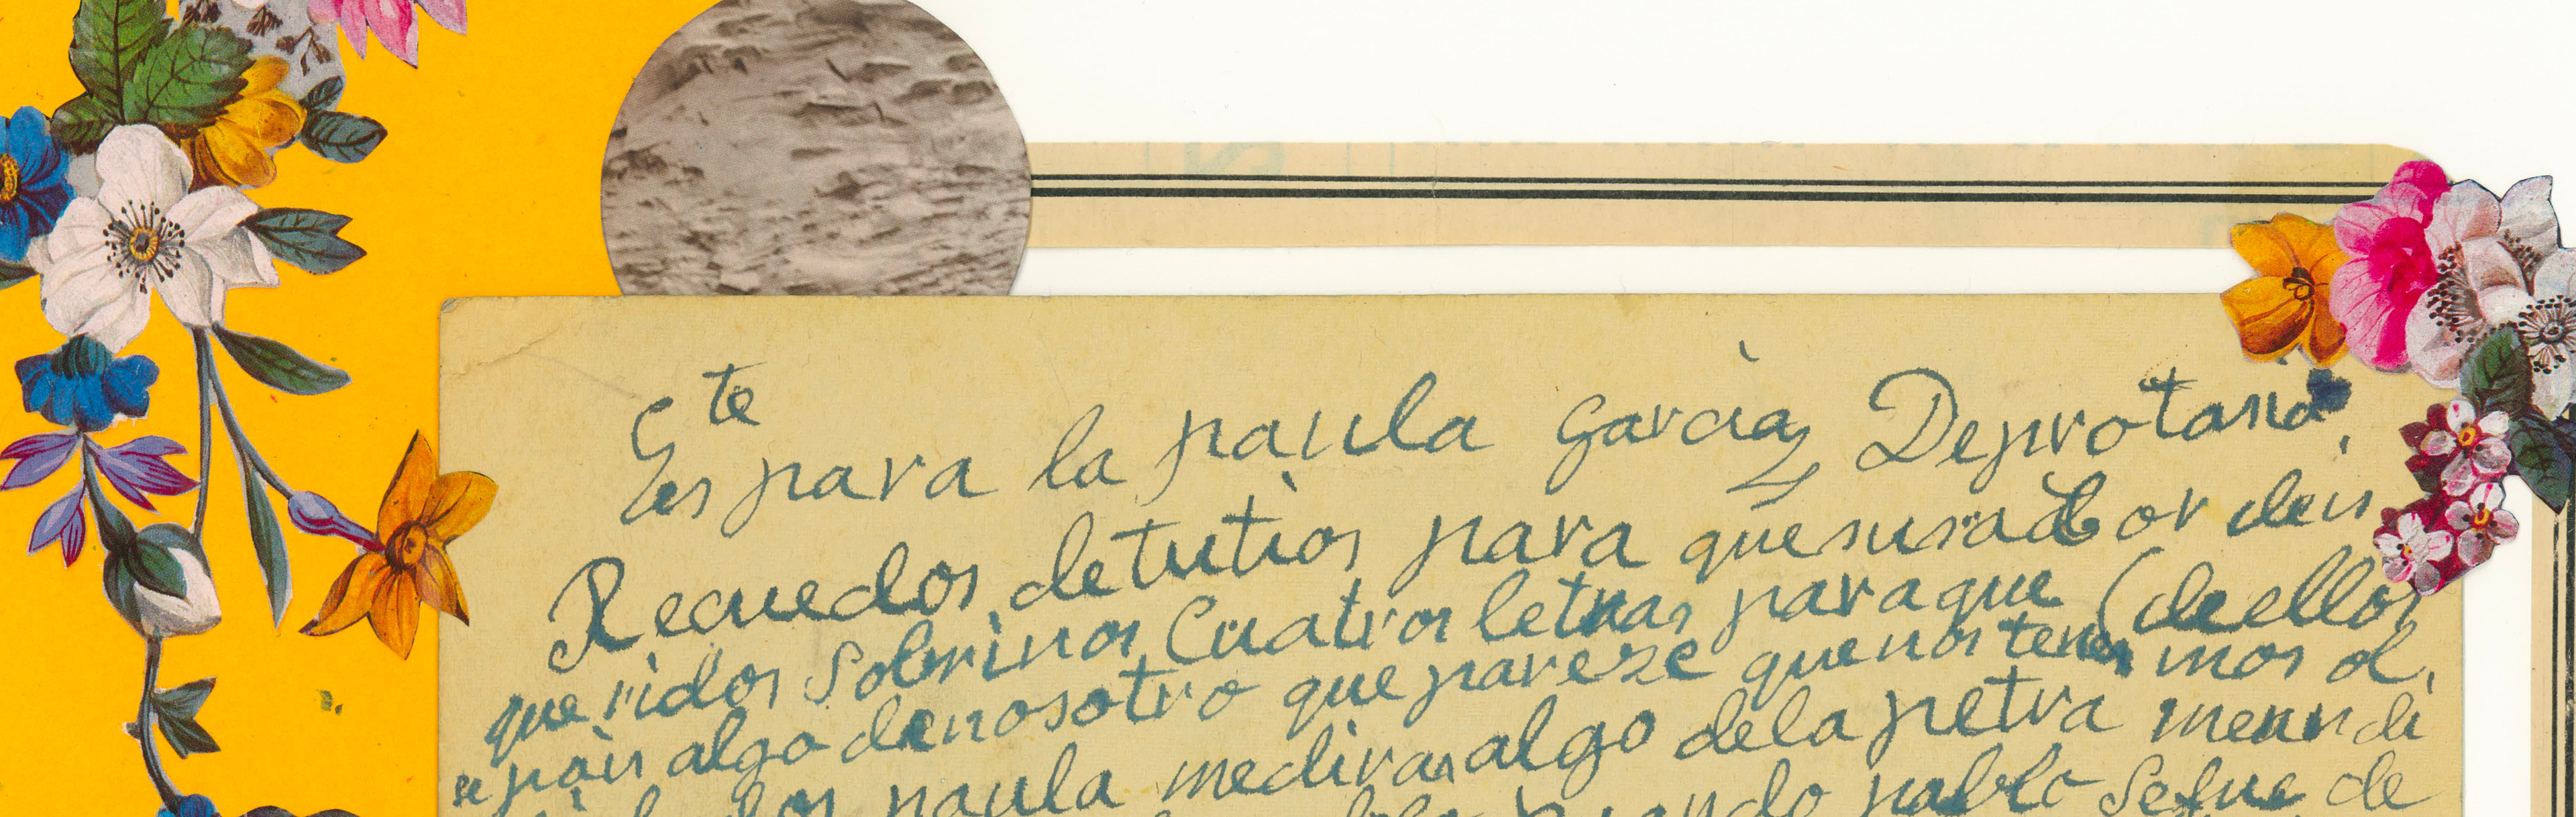 Este
es para la paula Garcia, De protasio,
Recuedos de tutios para que susadbor deis
queridos sobrinos Cuatros letras para que (de ellos
sepais algo de nosotro que pareze que nos tenemos ol
paula mediras algo dela petra
pablo se fue de